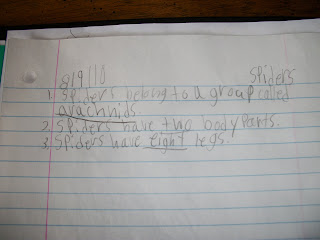 8/9/10 Spiders
1. Spiders belong to a group called
arachnids
2. Spiders have two body parts.
3. Spiders have eight legs.